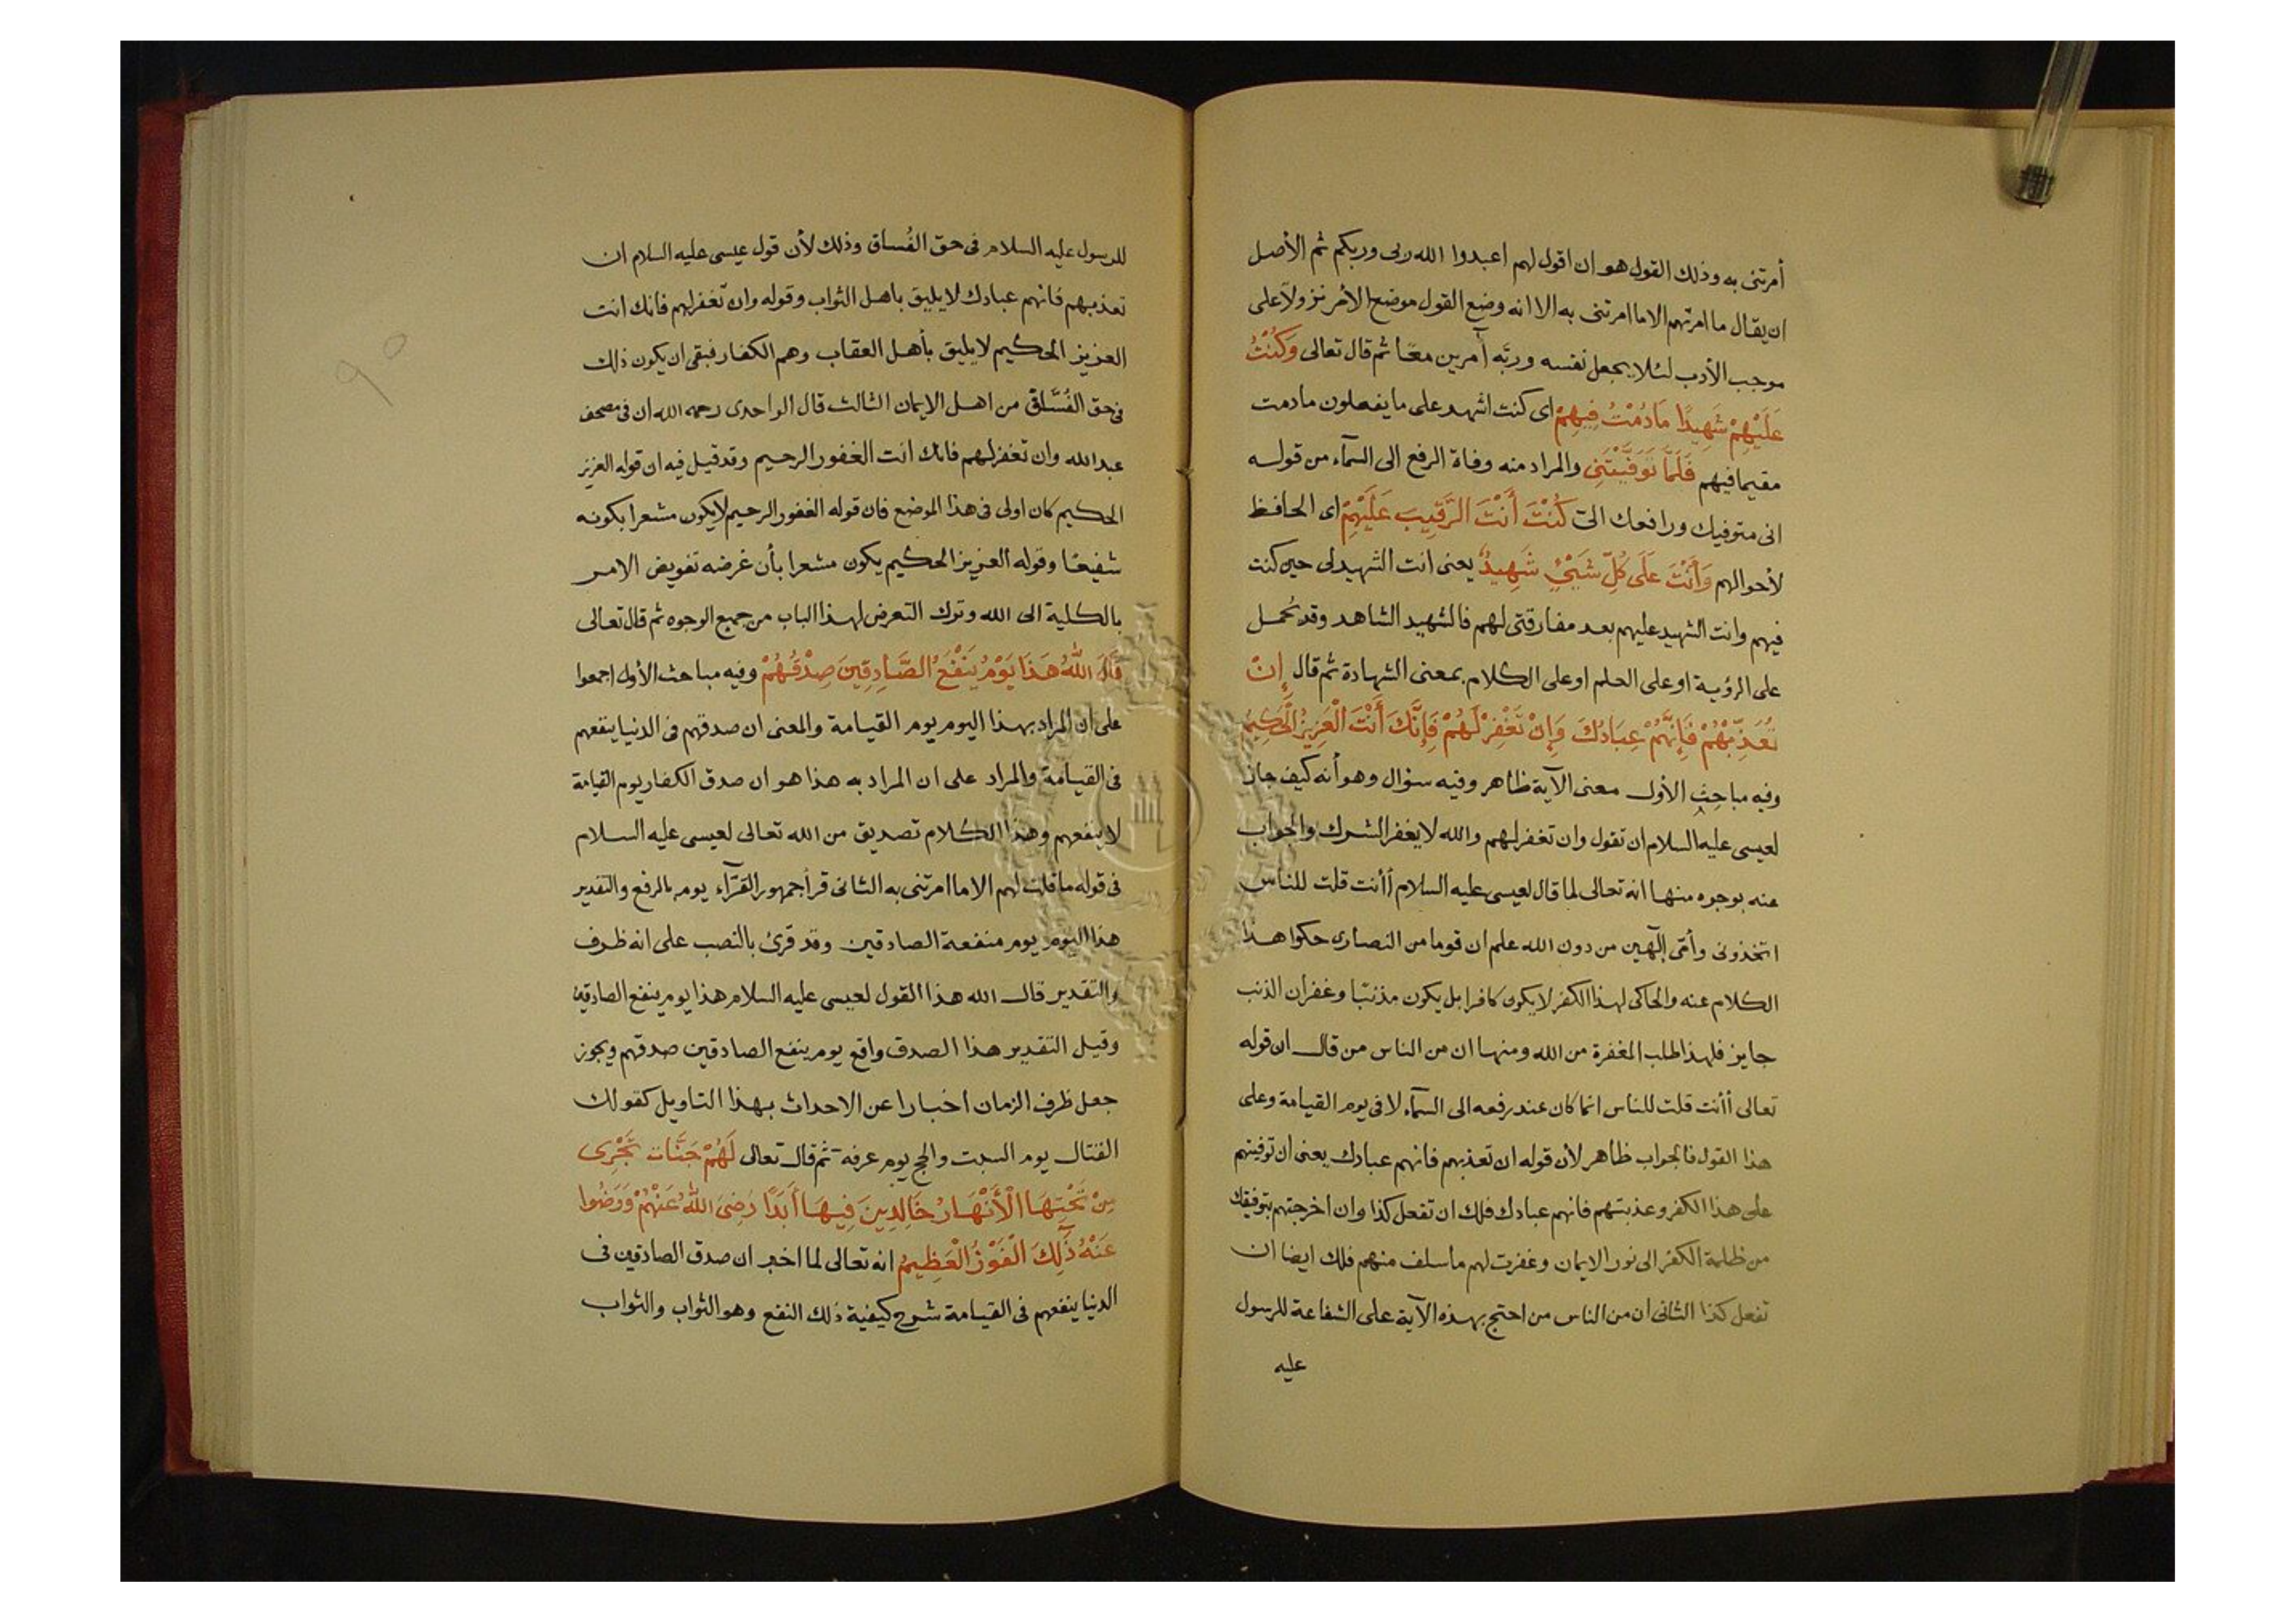 أمرتنى به وذلك القول هو ان اقول لهم اعبدوا الله ربى وربكم ثم الأصل
ان يقال ما امرتهم الا ما امرتنى به الا انه وضع القول موضع الأمر نزولا على
موجب الأدب لئلا يجعل نفسه وربّه آمرين معًا ثم قال تعالى وَكُنْتُ
عَلَيْهِمْ شَهِيدًا مَا دُمْتُ فِيهِمْ اى كنت اشهد على ما يفعلون ما دمت
مقيما فيهم فَلَمَّا تَوَفَّيْتَنِى والمراد منه وفاة الرفع الى السمآء من قوله
انى متوفيك ورافعك الىّ كُنْتَ أَنْتَ الرَّقِيبَ عَلَيْهِمْ اى الحافظ
لأحوالهم وَأَنْتَ عَلَى كُلِّ شَيْئٍ شَهِيدٌ يعنى انت الشهيد لى حين كنت
فيهم وانت الشهيد عليهم بعد مفارقتى لهم فالشهيد الشاهد وقد يحمل
على الرؤية او على العلم او على الكلام بمعنى الشهادة ثم قال إِنْ
تُعَذِّبْهُمْ فَإِنَّهُمْ عِبَادُكَ وَإِنْ تَغْفِرْ لَهُمْ فَإِنَّكَ أَنْتَ الْعَزِيزُ الْحَكِيمُ
وفيه مباحث الأول معنى الآية ظاهر وفيه سؤال وهو أنه كيف جاز
لعيسى عليه السلام ان تقول وان تغفر لهم والله لا يغفر الشرك والجواب
عنه بوجوه منها انه تعالى لما قال لعيسى عليه السلام أأنت قلت للناس
اتخذونى وأمّى إلهين من دون الله علم ان قوما من النصارى حكوا هذا
الكلام عنه والحاكى لهذا الكفر لا يكون كافرا بل يكون مذنبًا وغفران الذنب
جايز فلهذا طلب المغفرة من الله ومنها ان من الناس من قال ان قوله
تعالى أأنت قلت للناس انما كان عند رفعه الى السمآء لا فى يوم القيامة وعلى
هذا القول فالجواب ظاهر لأن قوله ان تعذبهم فانهم عبادك يعنى ان توفيتهم
على هذا الكفر وعذبتهم فانهم عبادك فلك ان تفعل كذا وان اخرجتهم بتوفيقك
من ظلمة الكفر الى نور الايمان وغفرت لهم ما سلف منهم فلك ايضا ان
تفعل كذا الثانى ان من الناس من احتج بهذه الآية على الشفاعة للرسول
عليه
للرسول عليه السلام فى حق الفُساق وذلك لأن قول عيسى عليه السلام ان
تعذبهم فانهم عبادك لا يليق باهل الثواب وقوله وان تغفر لهم فانك انت
العزيز الحكيم لا يليق بأهل العقاب وهم الكفار فبقى ان يكون ذلك
فى حق الفُسَّاق من اهل الايمان الثالث قال الواحدى رحمه الله ان فى مصحف
عبد الله وان تغفر لهم فانك انت الغفور الرحيم وقد قيل فيه ان قوله العزيز
الحكيم كان اولى فى هذا الموضع فان قوله الغفور الرحيم لا يكون مشعرا بكونه
شفيعًا وقوله العزيز الحكيم يكون مشعرا بأن غرضه تفويض الامر
بالكلية الى الله وترك التعرض لهذا الباب من جميع الوجوه ثم قال تعالى
قَالَ اللهُ هَذَا يَوْمُ يَنْفَعُ الصَّادِقِينَ صِدْقُهُمْ وفيه مباحث الأول اجمعوا
على ان المراد بهذا اليوم يوم القيامة والمعنى ان صدقهم فى الدنيا ينفعهم
فى القيامة والمراد على ان المراد به هذا هو ان صدق الكفار يوم القيامة
لا ينفعهم وهذا الكلام تصديق من الله تعالى لعيسى عليه السلام
فى قوله ما قلت لهم الا ما امرتنى به الثانى قرأ جمهور القرّآء يوم بالرفع والتقدير
هذا اليوم يوم منفعة الصادقين وقد قرئ بالنصب على انه ظرف
والتقدير قال الله هذا القول لعيسى عليه السلام هذا يوم ينفع الصادقين
وقيل التقدير هذا الصدق واقع يوم ينفع الصادقين صدقهم ويجوز
جعل ظرف الزمان اخبارا عن الاحداث بهذا التاويل كقولك
القتال يوم السبت والحج يوم عرفة ثم قال تعالى لَهُمْ جَنَّات تَجْرِى
مِنْ تَحْتِهَا الْأَنْهَارُ خَالِدِينَ فِيهَا أَبَدًا رَضِىَ اللهُ عَنْهُمْ وَرَضُوا
عَنْهُ ذَلِكَ الْفَوْزُ الْعَظِيمُ انه تعالى لما اخبر ان صدق الصادقين فى
الدنيا ينفعهم فى القيامة شرح كيفية ذلك النفع وهو الثواب والثواب
٩٥